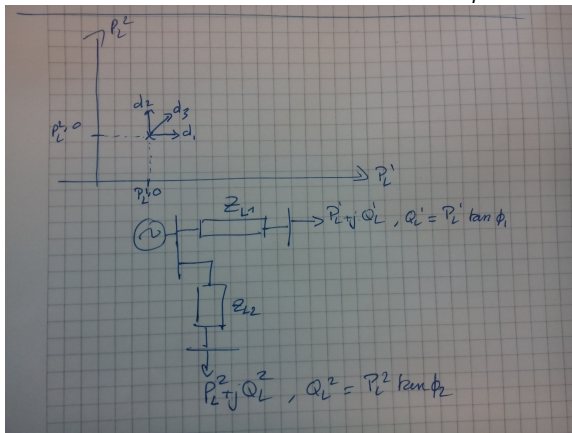 P_L^2
d_2
d_3
P_L^{2,0}
d_1
P_L^1
P_L^{1,0}
Z_{L1}
P_L^1+jQ_L^1 , Q_L^1 = P_L^1 tan ϕ_1
Z_{L2}
P_L^2+jQ_L^2 , Q_L^2 = P_L^2 tan ϕ_2